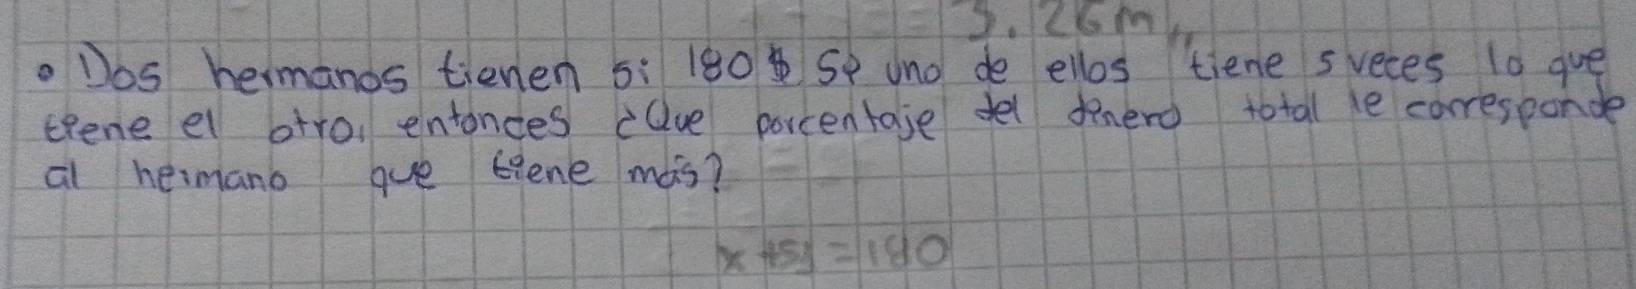 3.26m
• Dos hermanos tienen si 180$ si uno de ellos tiene 5 veces lo que
tiene el otro, entonces ¿Que porcentaje del dinero total le corresponde
al hermano que tiene más?
x+5y=180